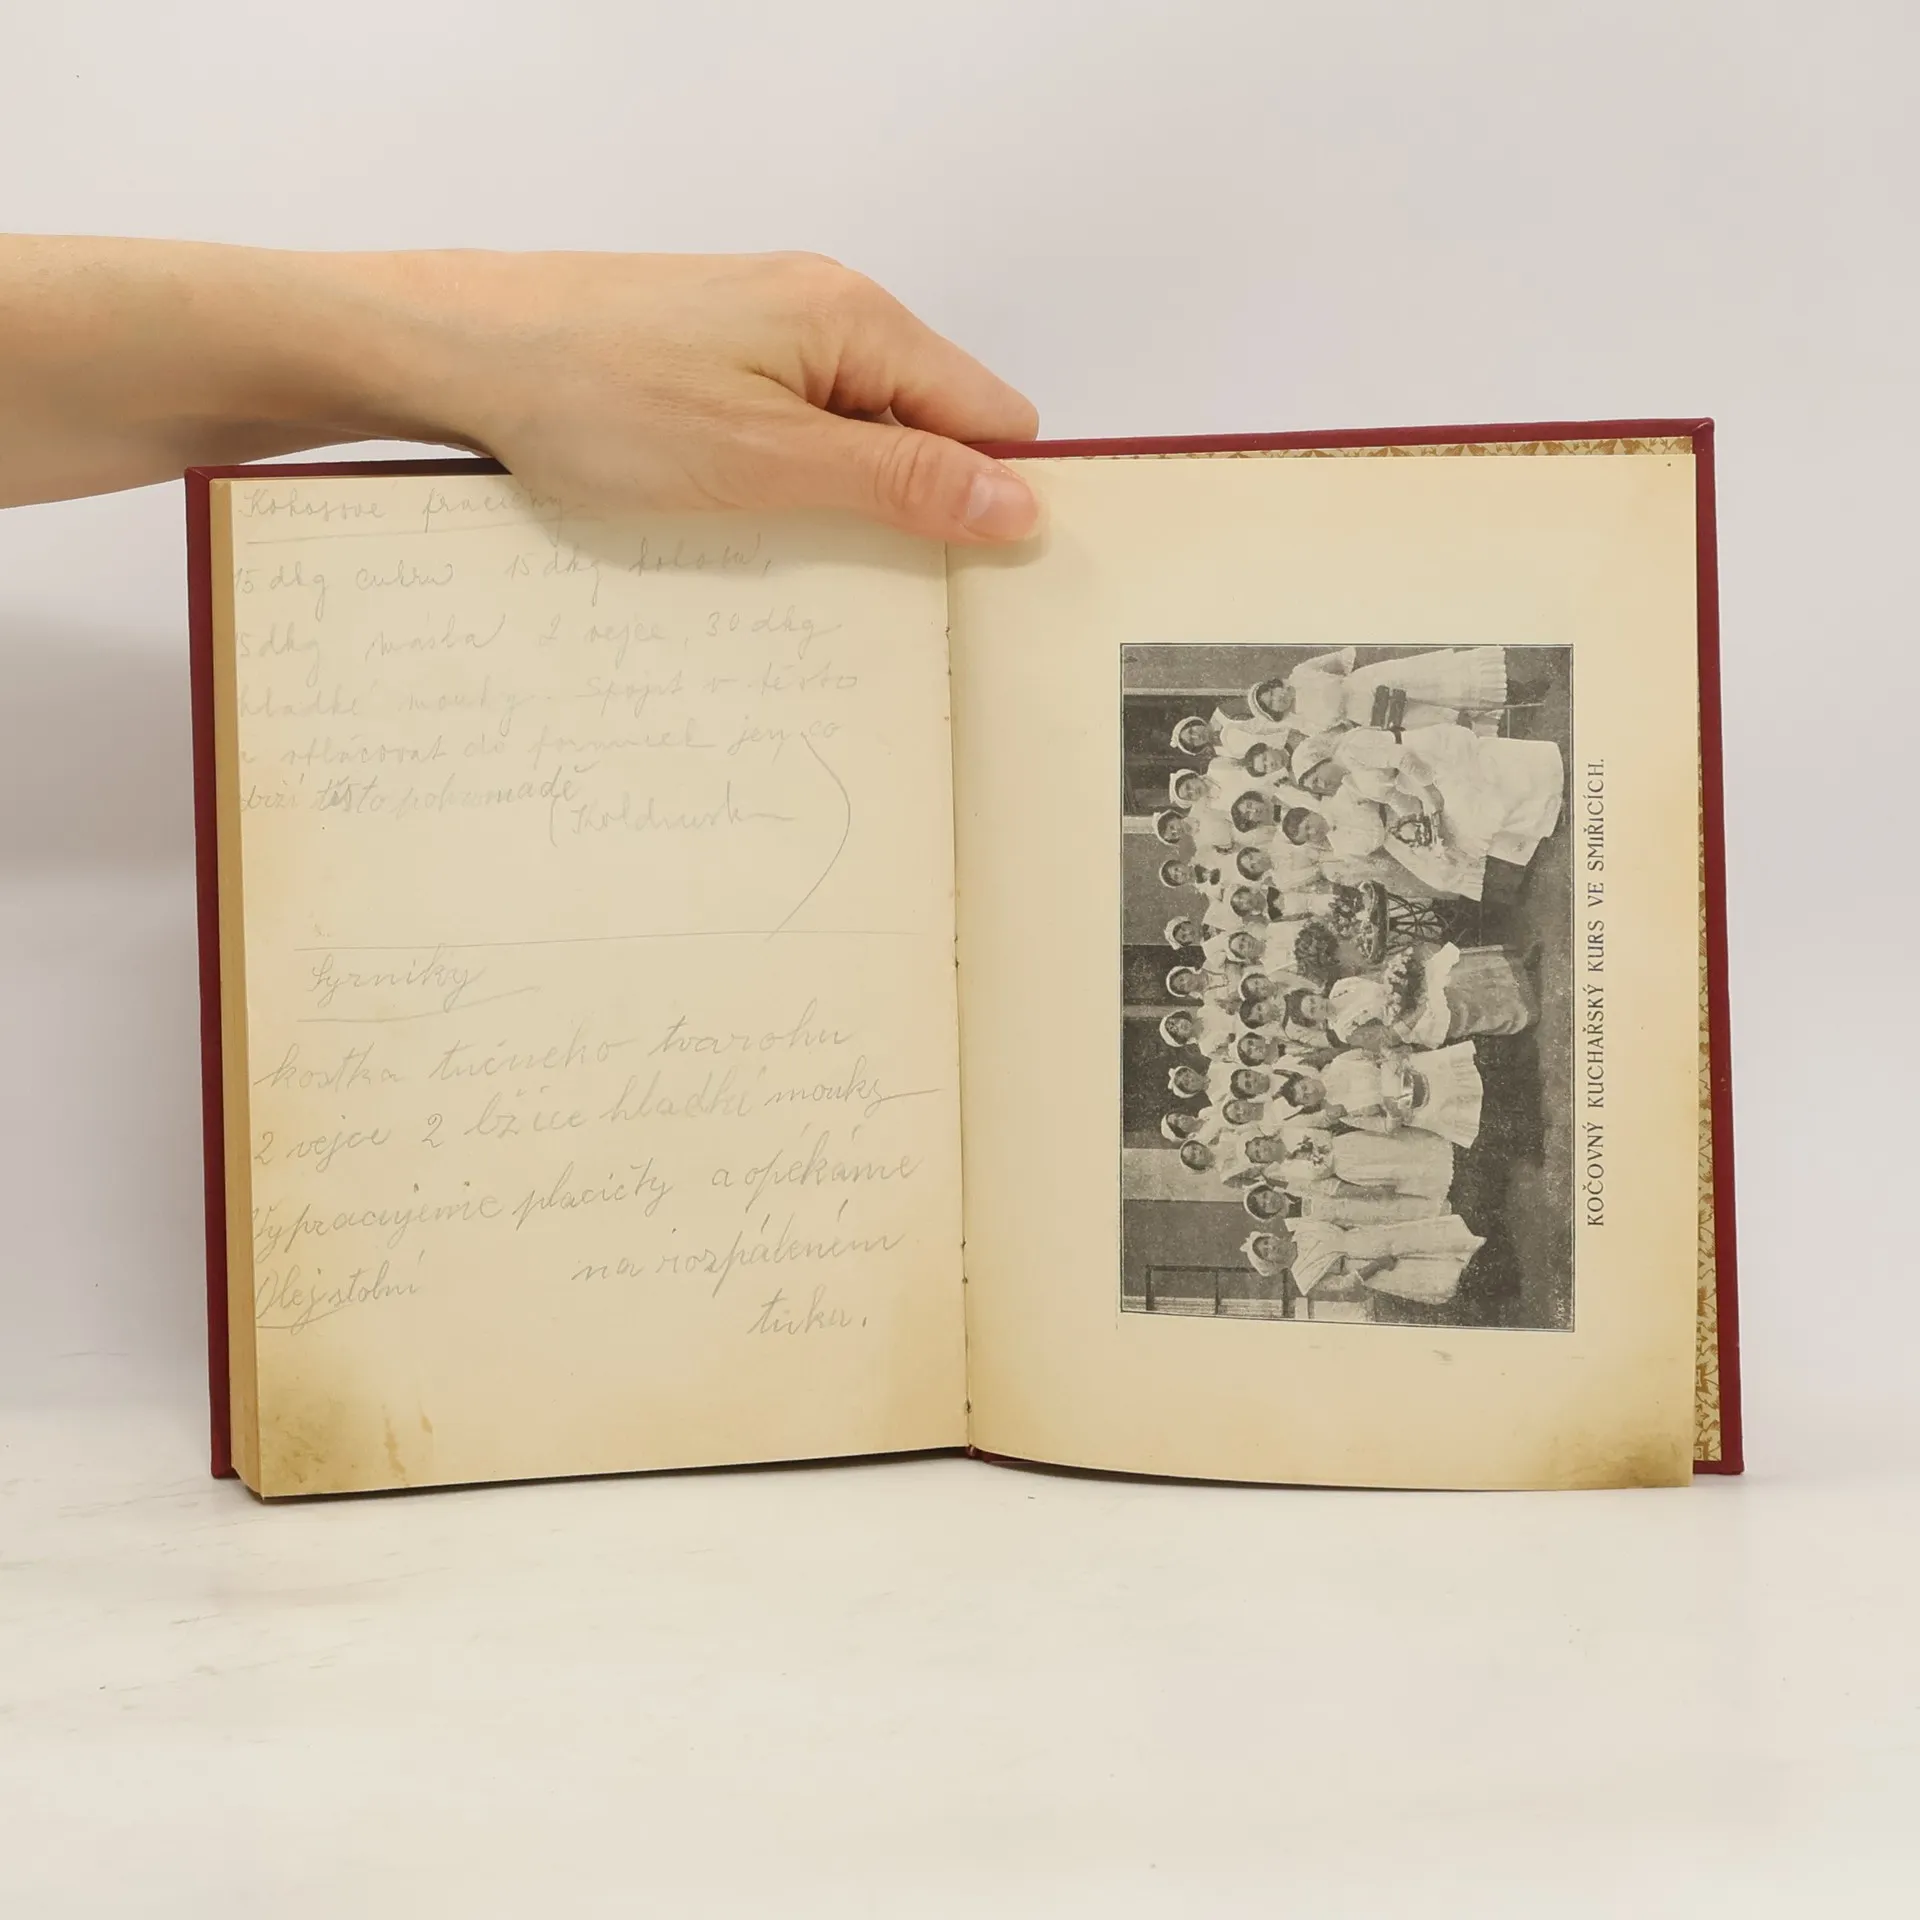 Kokosové pracičky
15 dkg cukru 15 dkg kokosu,
15 dkg másla 2 vejce, 30 dkg
hladké mouky. Spojit v těsto
a vtlačovat do formiček jen co
drží těsto pohromadě
Syrniky
kostka tučného tvarohu
2 vejce 2 lžíce hladké mouky
Vypracujeme placičky a opékáme
na rozpáleném
Olej stolní
tuku.
KOČOVNÝ KUCHAŘSKÝ KURS VE SMIŘICÍCH.